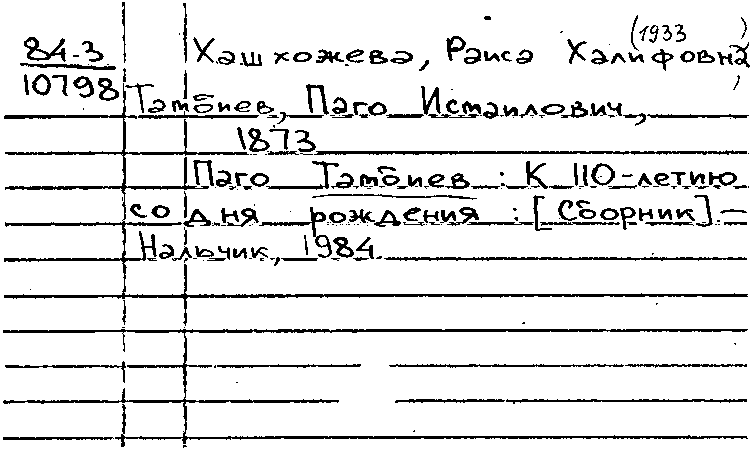 (1933 )
84-3 Хашхожева, Раиса Халифовна,
10798
Тамбиев, Паго Исмаилович,
1873
Паго Тамбиев : К 110-летию
со дня рождения : [Сборник] –
Нальчик, 1984